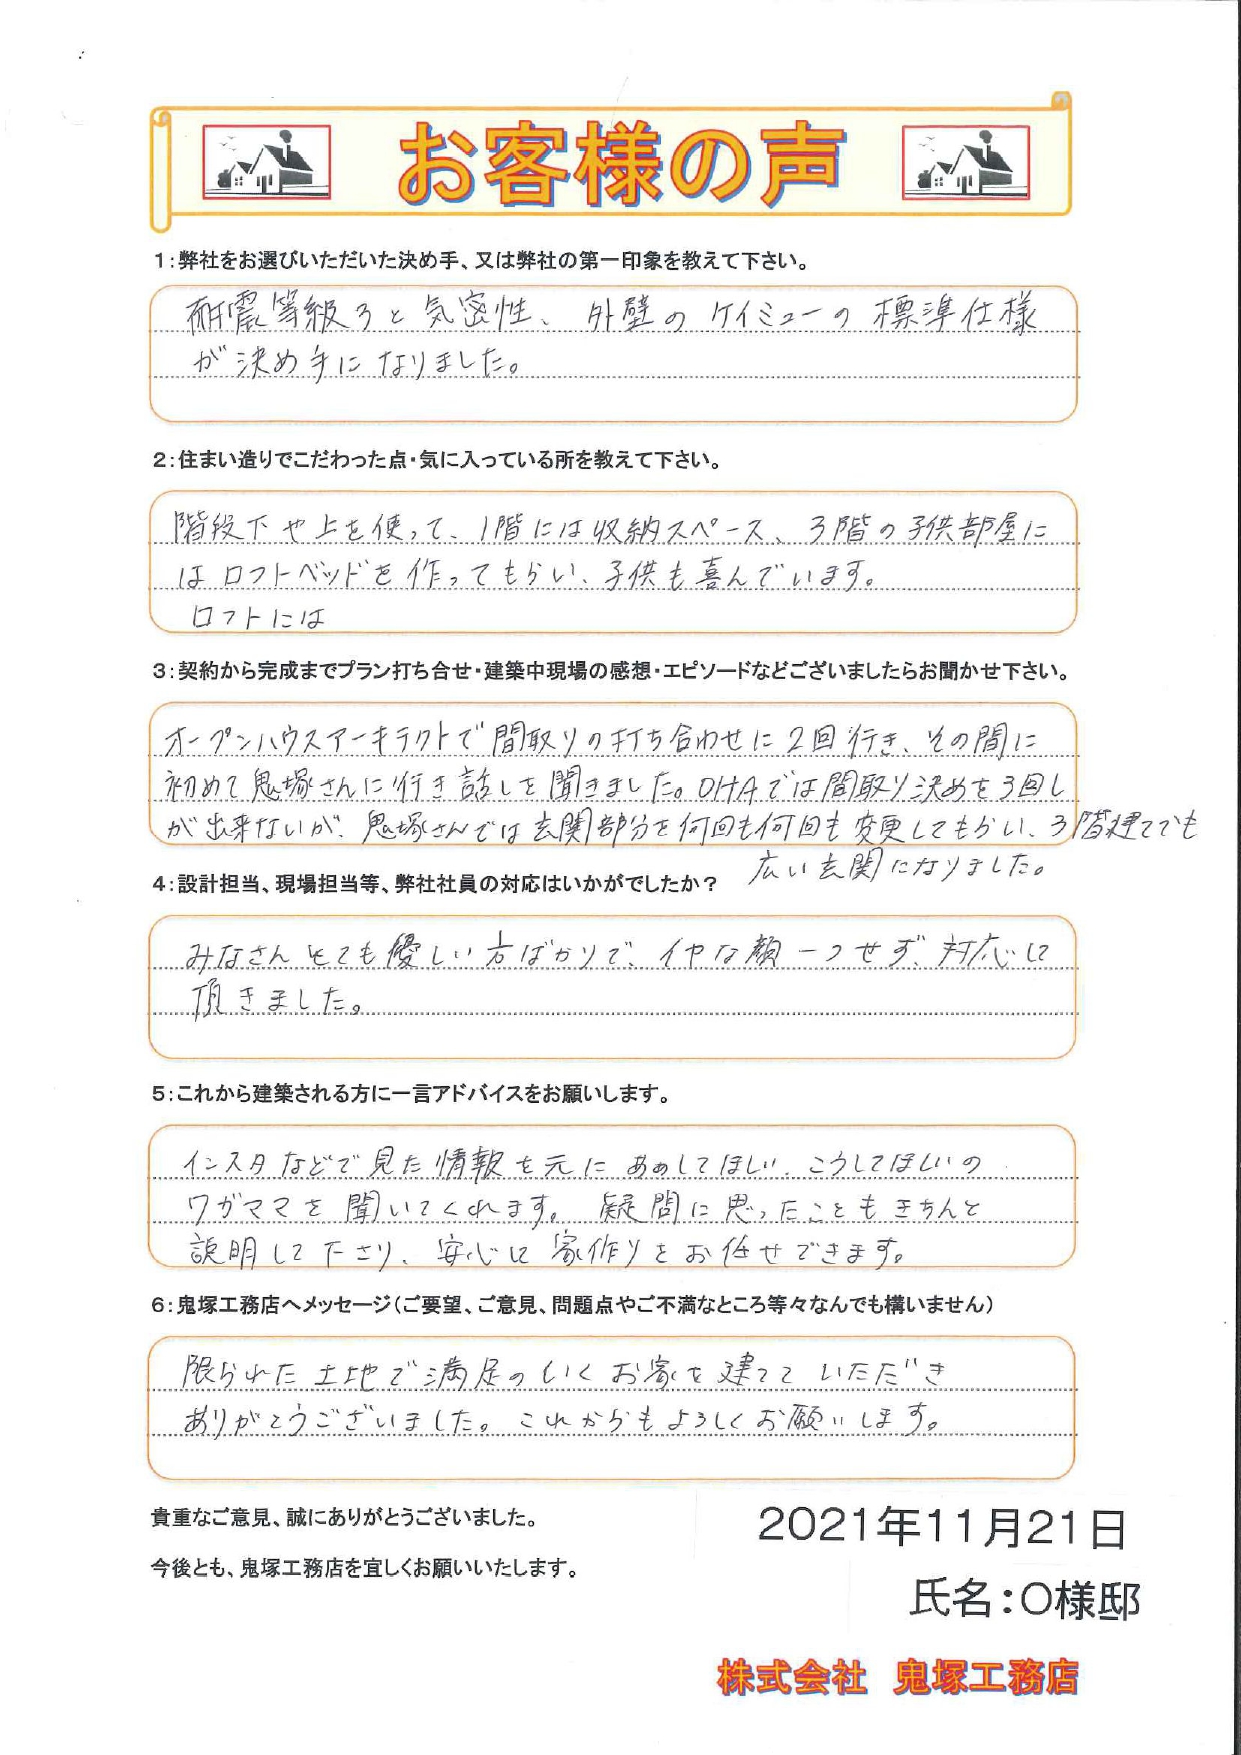 お客様の声
1:弊社をお選びいただいた決め手、又は弊社の第一印象を教えて下さい。
耐震等級3と気密性、外壁のケイミューの標準仕様
が決め手になりました。
2:住まい造りでこだわった点・気に入っている所を教えて下さい。
階段下や上を使って、1階には収納スペース、3階の子供部屋に
はロフトベッドを作ってもらい、子供も喜んでいます。
ロフトには
3:契約から完成までプラン打ち合せ・建築中現場の感想・エピソードなどございましたらお聞かせ下さい。
オープンハウスアーキテクトで間取りの打ち合わせに2回行き、その間に
初めて鬼塚さんに行き話しを聞きました。OHAでは間取り決めを3回し
が出来ないが、鬼塚さんでは玄関部分を何回も何回も変更してもらい、3階建てでも
広い玄関になりました。
4:設計担当、現場担当等、弊社社員の対応はいかがでしたか?
みなさんとても優しい方ばかりで、イヤな顔一つせず、対応して
頂きました。
5:これから建築される方に一言アドバイスをお願いします。
インスタなどで見た情報を元にあぁしてほしい、こうしてほしいの
ワガママを聞いてくれます。疑問に思ったこともきちんと
説明して下さり、安心して家作りをお任せできます。
6:鬼塚工務店へメッセージ(ご要望、ご意見、問題点やご不満なところ等々なんでも構いません)
限られた土地で満足のいくお家を建てていただき
ありがとうございました。これからもよろしくお願いします。
貴重なご意見、誠にありがとうございました。
2021年11月21日
今後とも、鬼塚工務店を宜しくお願いいたします。
氏名:O様邸
株式会社 鬼塚工務店